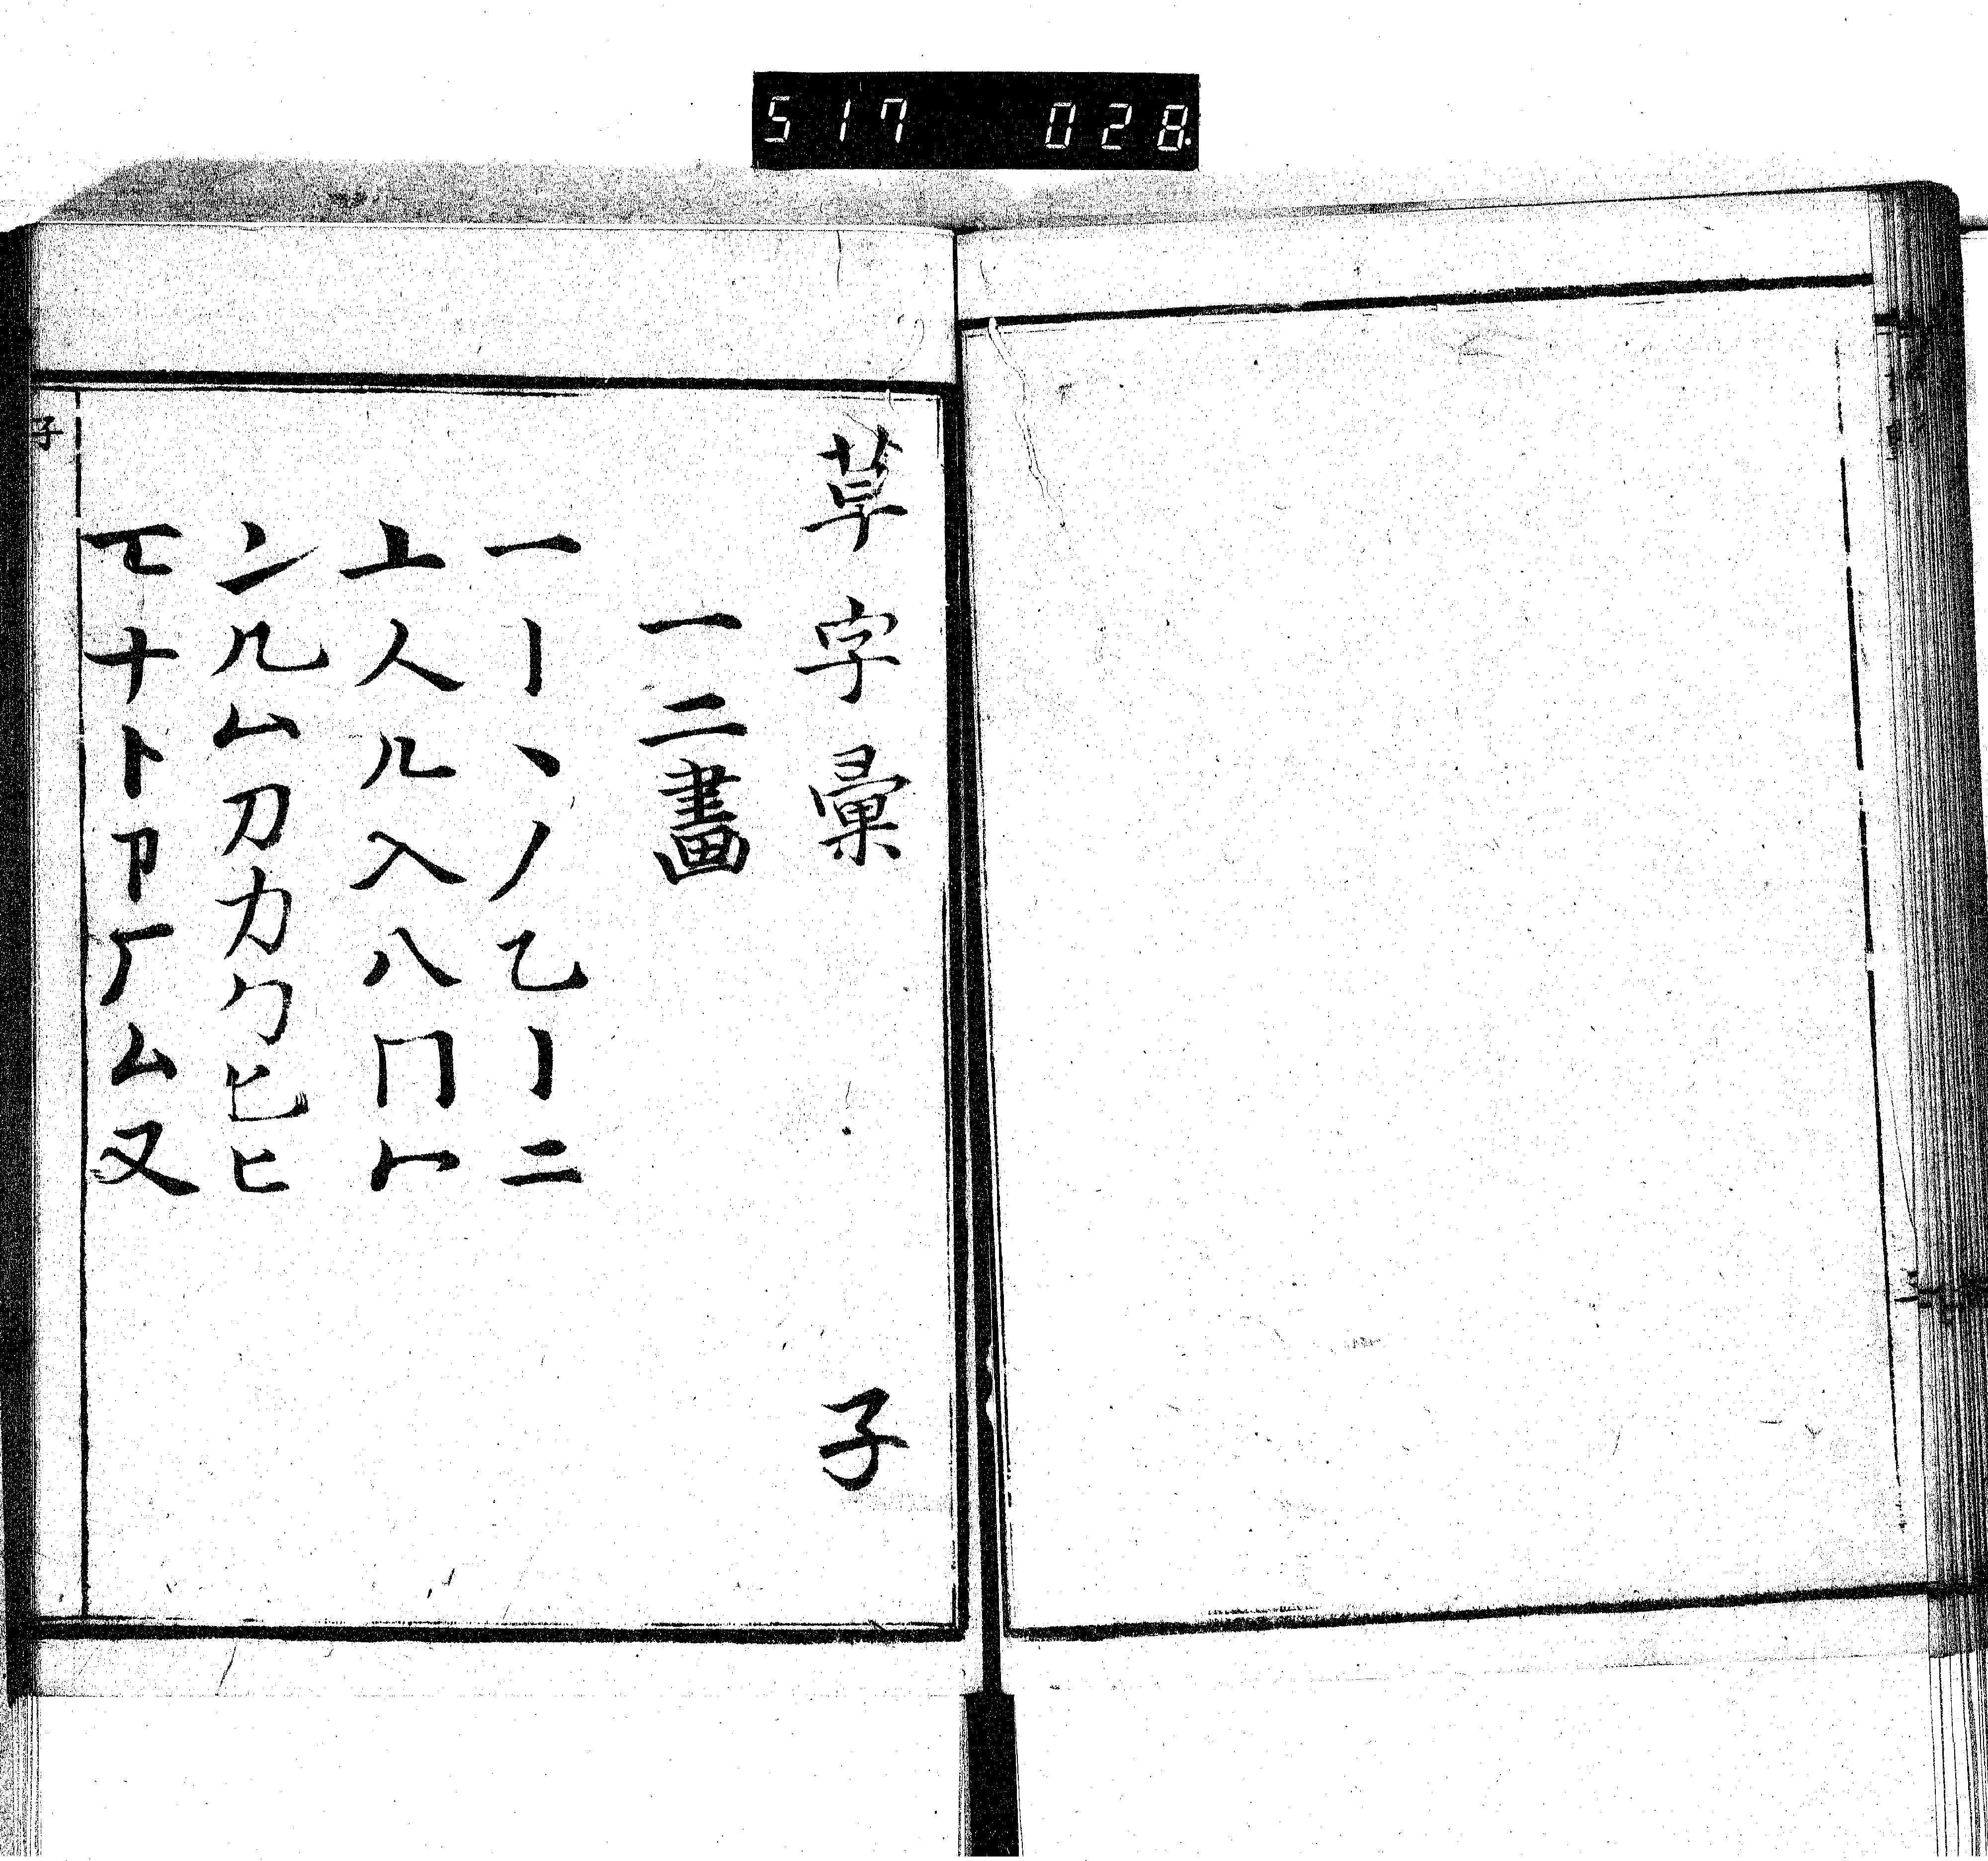 517 028
草字彙 子
一二畫
一丨丶丿乙亅二
亠人儿入八冂冖
冫几凵刀力勹匕匚
匸十卜卩厂厶又
子